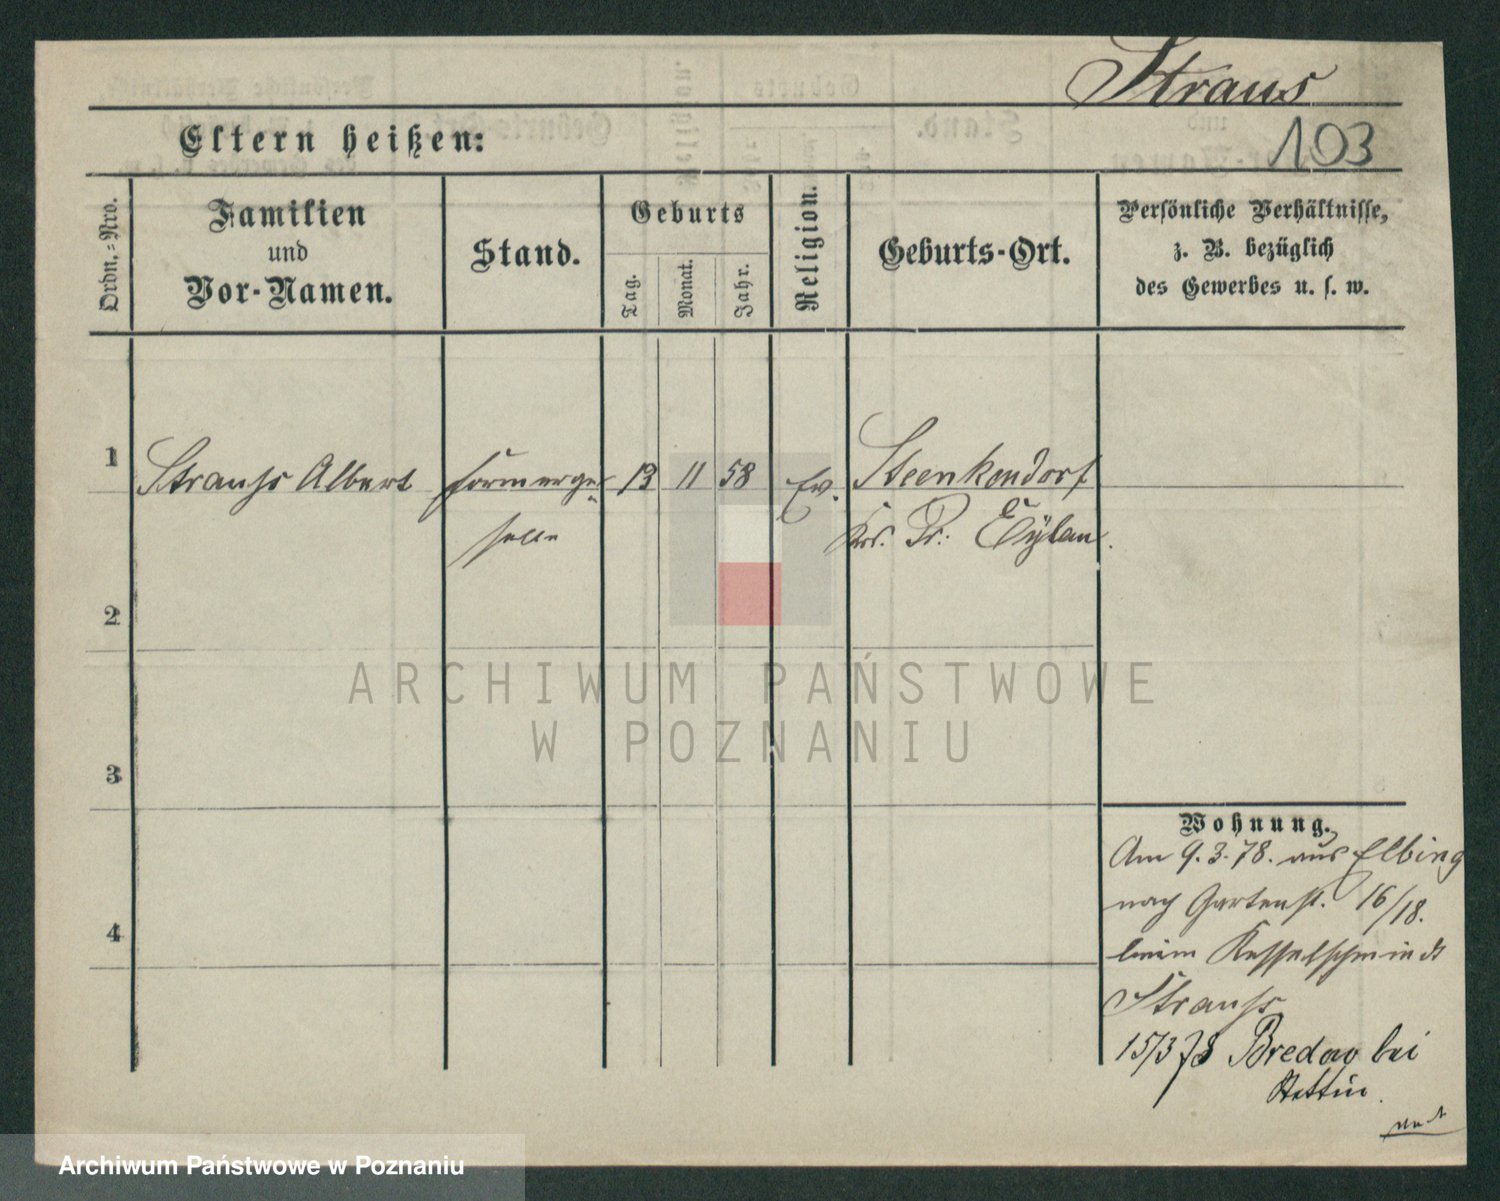 Straus
103
Eltern heißen:
Ordn.-Nro.
Familien
und
Vor-Namen.
Stand.
Geburts
Tag.
Monat.
Jahr.
Religion.
Geburts-Ort.
Persönliche Verhältnisse,
z. B. bezüglich
des Gewerbes u. s. w.
1
Strauhs Albert
Formerge-
selle
13
11
58
Ev.
Steenkendorf
Krs. Pr. Eÿlau.
2
3
4
Wohnung.
Am 9.3.78. aus Elbing
nach Gartenst. 16/18.
beim Kesselschmiedt
Strauhs
15/3 78 Bredow bei
Stettin.
ARCHIWUM PAŃSTWOWE
W POZNANIU
Archiwum Państwowe w Poznaniu